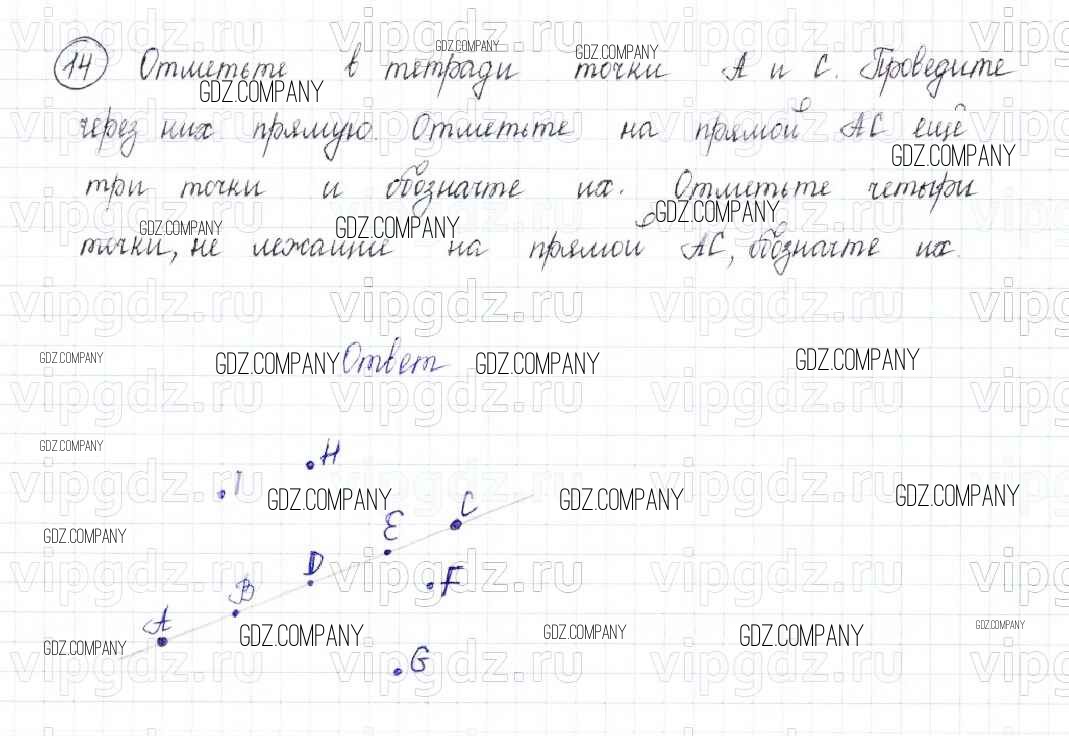 14 Отметьте в тетради точки А и С. Проведите
через них прямую. Отметьте на прямой АС ещё
три точки и обозначте их. Отметьте четыре
точки, не лежащие на прямой АС, обозначте их.
Ответ
H
I
C
E
D
F
B
A
G
vipgdz.ru
GDZ.COMPANY